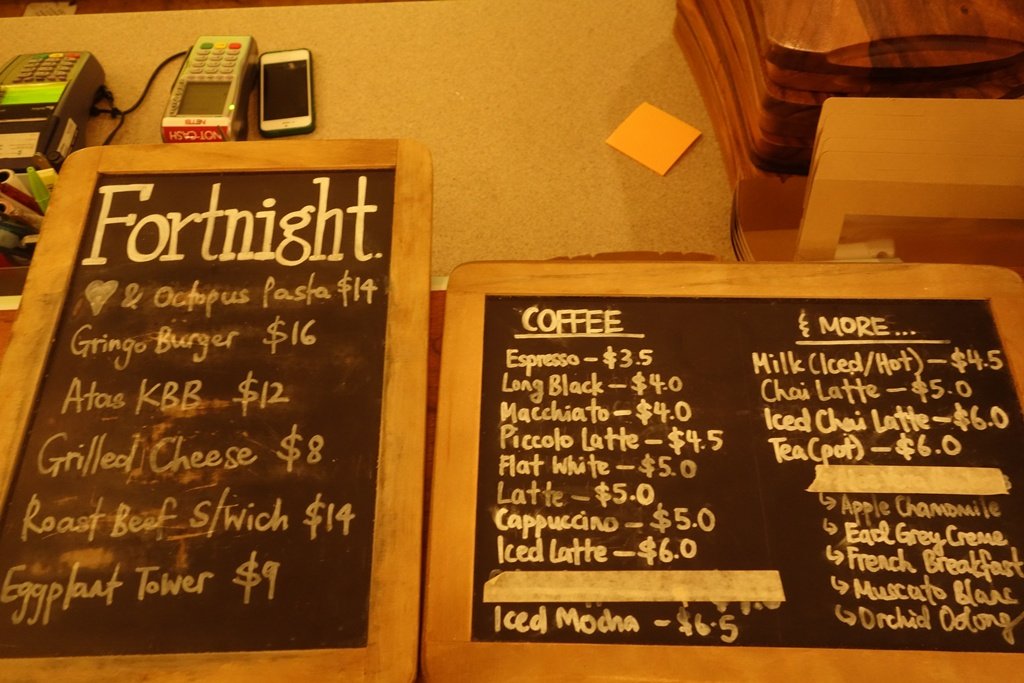 NETS
NOT-CASH
Fortnight.
& Octopus Pasta $14
Gringo Burger $16
Atas KBB $12
Grilled Cheese $8
Roast Beef S/wich $14
Eggplant Tower $9
COFFEE
Espresso - $3.5
Long Black - $4.0
Macchiato - $4.0
Piccolo Latte - $4.5
Flat White - $5.0
Latte - $5.0
Cappuccino - $5.0
Iced Latte - $6.0
Iced Mocha - $6.5
& MORE...
Milk (Iced/Hot) - $4.5
Chai Latte - $5.0
Iced Chai Latte - $6.0
Tea (pot) - $6.0
↳ Apple Chamomile
↳ Earl Grey Creme
↳ French Breakfast
↳ Muscato Blanc
↳ Orchid Oolong